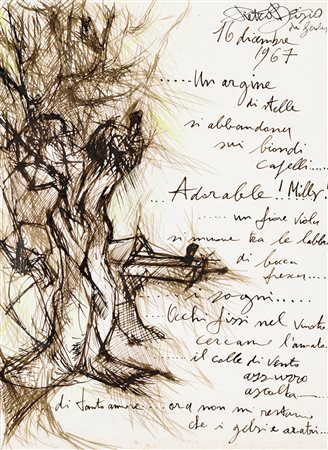 16 dicembre
1967
.....Un argine
di stelle
si abbandona
sui biondi
capelli....
...Adorable! Milly!
......un fiore viola
si muove tra le labbra
di bocca
fresca....
i sogni.....
Occhi fissi nel vuoto
cercano l'amato...
il colle di vento
azzurro
ascolta
di tanto amore...ora non mi restano
che i gelsi e